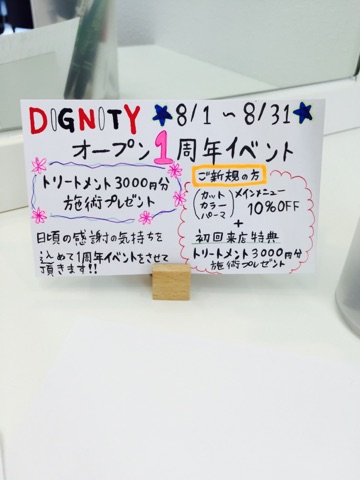 DIGNITY ★8/1～8/31★
オープン1周年イベント
トリートメント3000円分
施術プレゼント
日頃の感謝の気持ちを
込めて1周年イベントをさせて
頂きます!!
ご新規の方
(カット カラー パーマ) メインメニュー
10%OFF
+
初回来店特典
トリートメント3000円分
施術プレゼント